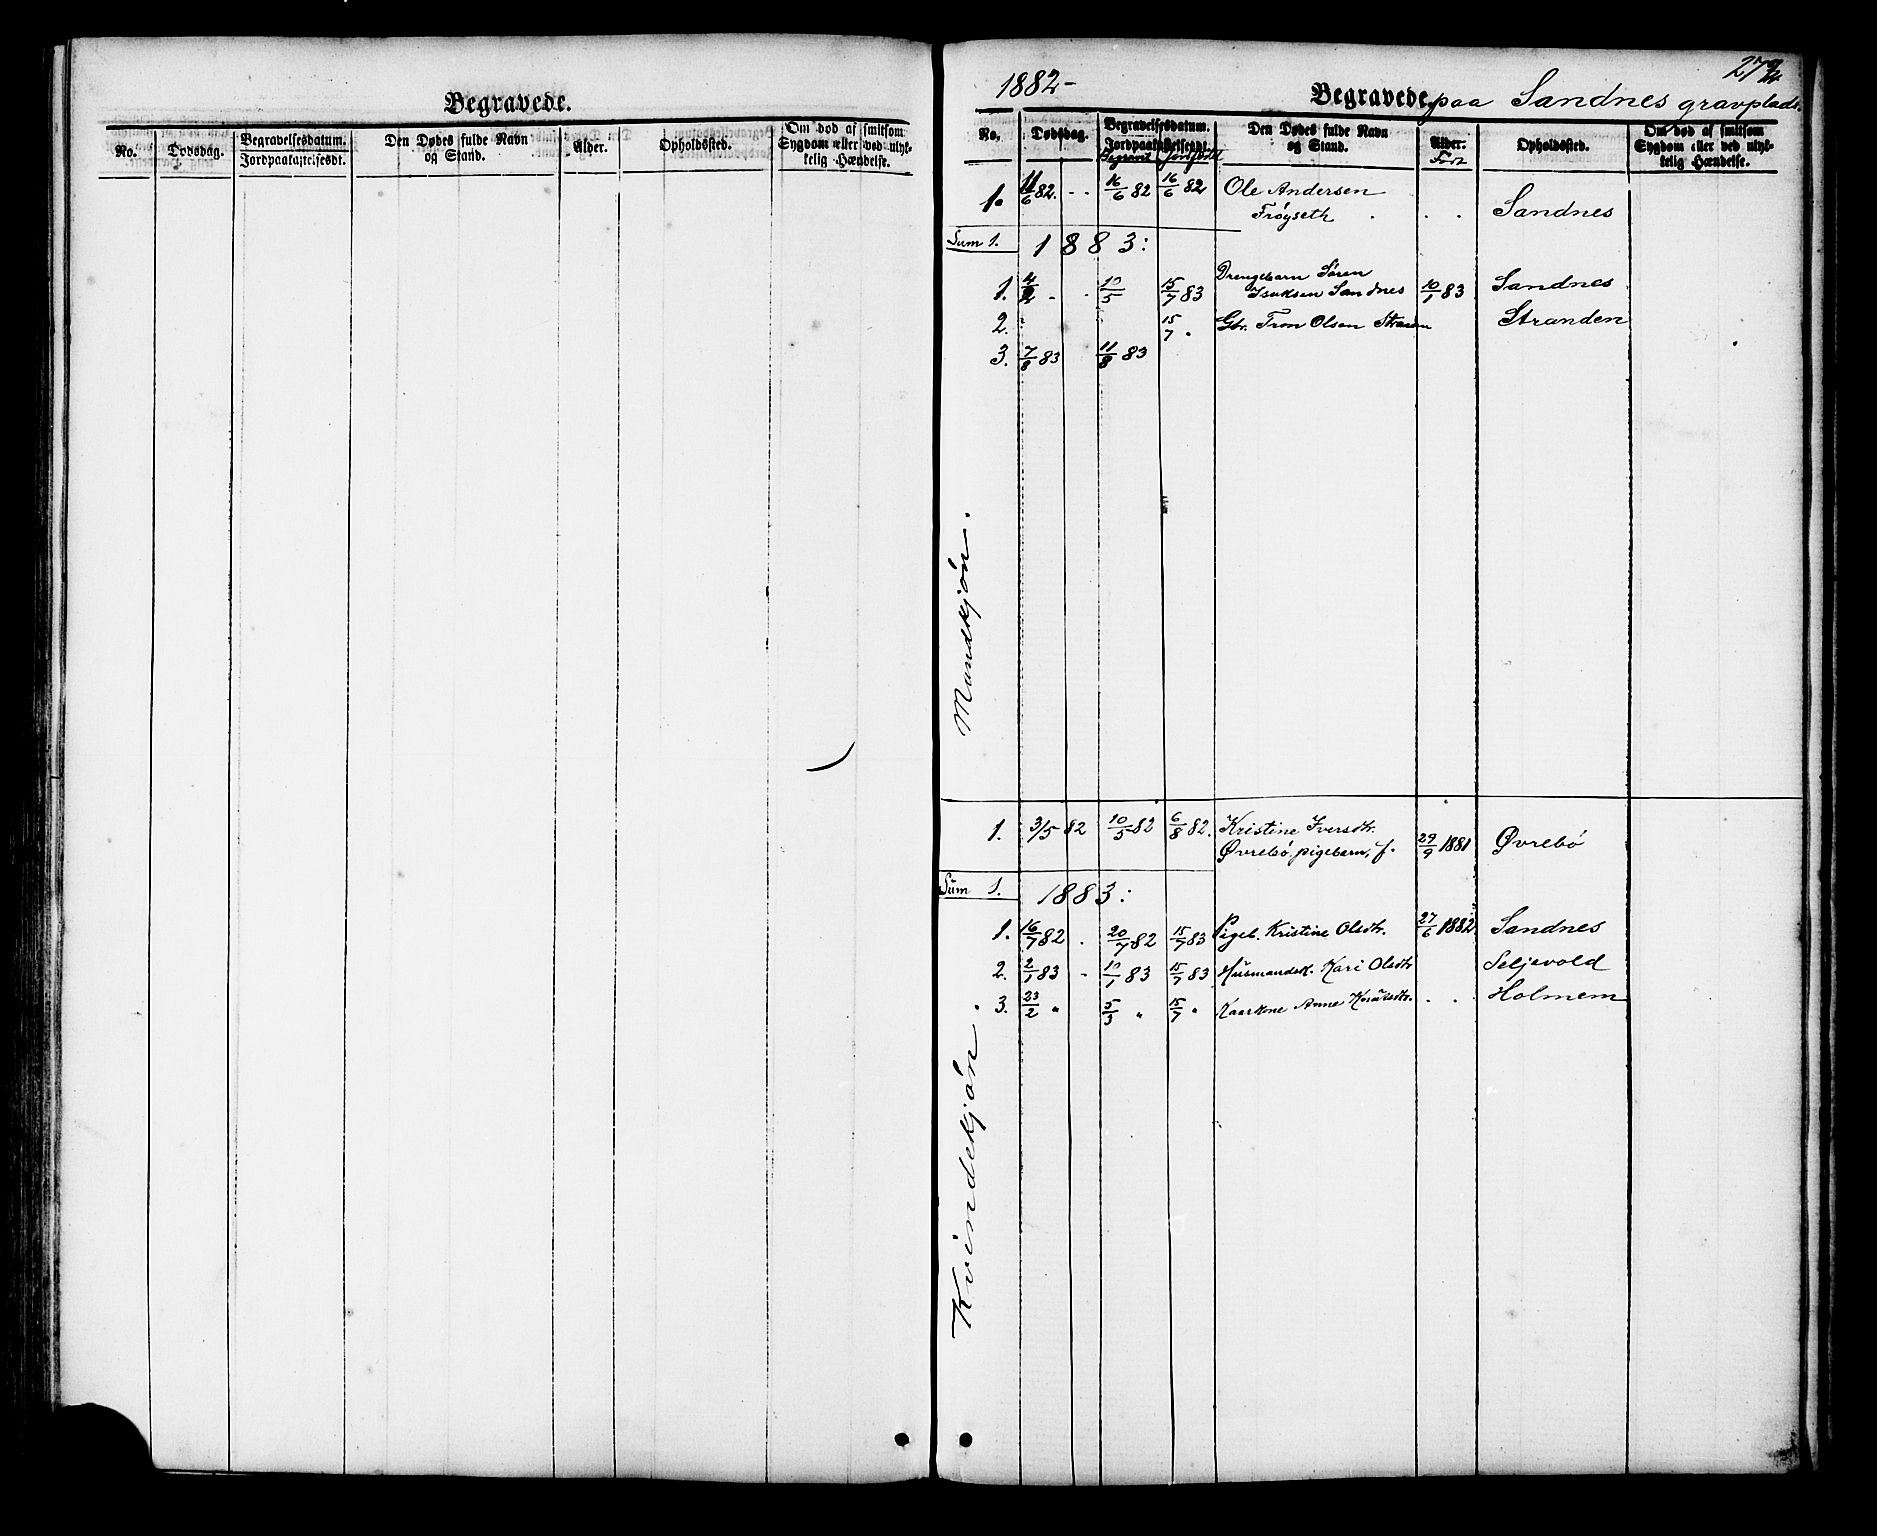 Begravede.
No. Dødsdag. Begravelsesdatum. Jordpaakastelsesdt. Den Dødes fulde Navn og Stand. Alder. Opholdssted. Om død af smitsom Sygdom eller ved ulykkelig Hændelse.
1882-
Begravede paa Sandnes gravplads.
No. Dødsdag. Begravelsesdatum. Jordpaakastelsesdt. Den Dødes fulde Navn og Stand. Alder. Opholdssted. Om død af smitsom Sygdom eller ved ulykkelig Hændelse.
Begravet Født
Mandkjøn.
1. 11/6 82. - - 16/6 82 16/6 82 Ole Andersen
Frøyseth . . . Sandnes
Sum 1. 1883:
Drengebarn Søren
1. 4/2 - - 10/5 15/7 83 Isaksen Sandnes 10/1 83 Sandnes
2. 15/7 " Gbr. Tron Olsen Stranden
3. 7/8 83 11/8 83
Kvindekjøn.
1. 3/5 82 10/5 82 6/8 82. Kristine Iversdtr.
Øvrebø, pigebarn, f. 29/9 1881 Øvrebø
Sum 1. 1883:
1. 16/7 82 . 20/7 82 15/7 83 Pigeb. Kristine Olsdtr. 27/6 1882 Sandnes
2. 2/1 83 - 10/1 83 15/7 83 Husmandsk. Kari Olsdtr Seljevold
3. 23/2 " 5/3 " 15/7 " Kaarkone Anne . . Holmem